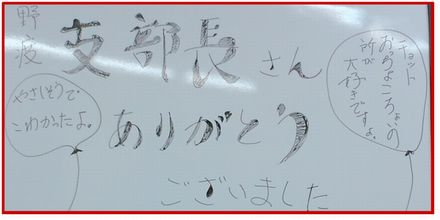 支部長さん
ありがとう
ございました
チョット
おっちょこちょいの
所が
大好きですよ。
やさしそうで
こわかったよ。